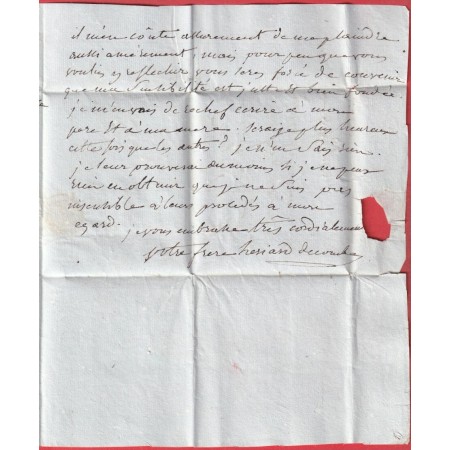 il m'en coute assurement de me plaindre
aussi amèrement, mais pour peu que vous
voulies y reflechir, vous seres forcé de convenir
que ma sensibilité est juste et bien fondée.
je m'en vais de rechef ecrire à mon
pere et a ma mere. serai je plus heureux
cette fois que les autres? je n'en sais rien.
je leur prouverai du moins si je ne peux
rien en obtenir que je ne suis pas
insensible à leurs procedés à mon
egard.
je vous embrasse très cordialement
votre frere